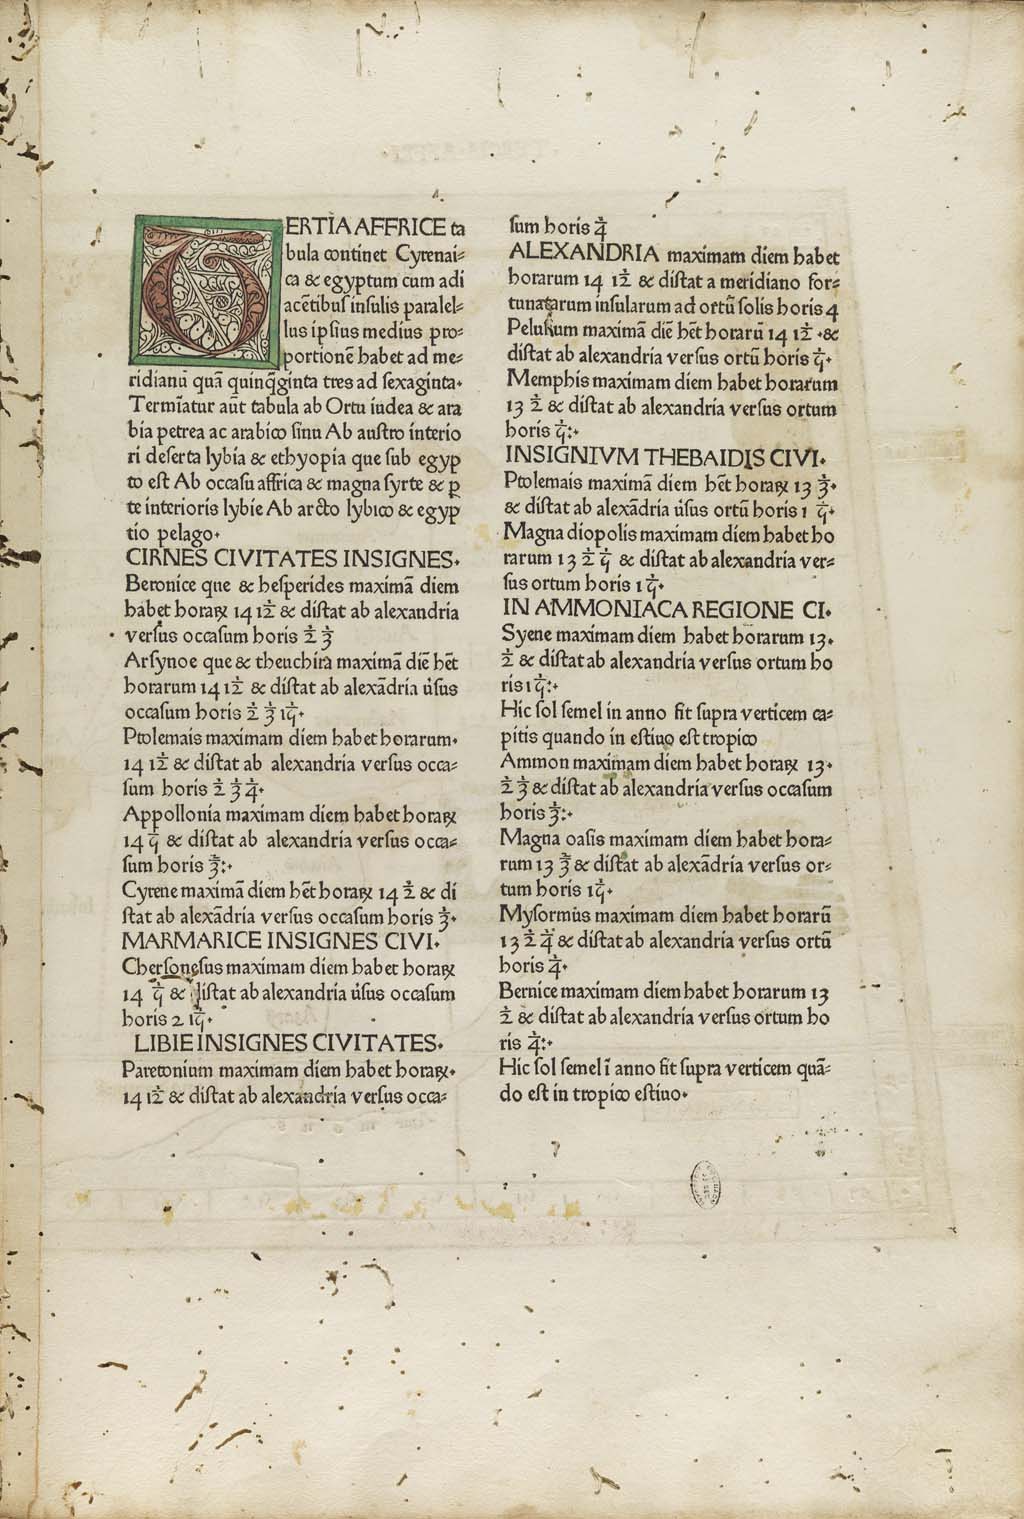 TERTIA AFFRICE ta
bula continet Cyrenai⸗
ca & egyptum cum adi
acētibuſ inſulis paralel⸗
lus ipſius medius pro⸗
portionē habet ad me⸗
ridianū quā quinq̄ginta tres ad ſexaginta.
Termīatur aūt tabula ab Ortu iudea & ara
bia petrea ac arabico ſinu Ab auſtro interio
ri deſerta lybia & ethyopia que ſub egyp
to eſt Ab occaſu affrica & magna ſyrte & ꝑ
te interioris lybie Ab arcto lybico & egyp
tio pelago.
CIRNES CIVITATES INSIGNES.
Beronice que & heſperides maximā diem
habet horaꝝ 14 1/2 & diſtat ab alexandria
verſus occaſum horis 1/2 1/3
Arſynoe que & theuchira maximā diē hēt
horarum 14 1/2 & diſtat ab alexādria u̓ſus
occaſum horis
Ptolemais maximam diem habet horarum.
14 1/2 & diſtat ab alexandria verſus occa⸗
ſum horis 1/2 1/3 1/4.
Appollonia maximam diem habet horaꝝ
14 & diſtat ab alexandria verſus occa⸗
ſum horis
Cyrene maximā diem hēt horaꝝ 14 1/2 & di
ſtat ab alexādria verſus occaſum horis
MARMARICE INSIGNES CIVI.
Cherſoneſus maximam diem habet horaꝝ
14 & diſtat ab alexandria u̓ſus occaſum
horis
LIBIE INSIGNES CIVITATES.
Paretonium maximam diem habet horaꝝ.
14 1/2 & diſtat ab alexandria verſus occa⸗
ſum horis
ALEXANDRIA maximam diem habet
horarum 14 1/2 & diſtat a meridiano for⸗
tunatarum inſularum ad ortū ſolis horis 4
Peluſium maximā diē hēt horarū 14 1/2 .&
diſtat ab alexandria verſus ortū horis
Memphis maximam diem habet horarum
13 1/2 & diſtat ab alexandria verſus ortum
horis
INSIGNIVM THEBAIDIS CIVI.
Ptolemais maximā diem hēt horaꝝ 13
& diſtat ab alexādria u̓ſus ortū horis 1
Magna diopolis maximam diem habet ho
rarum 13 & diſtat ab alexandria ver⸗
ſus ortum horis
IN AMMONIACA REGIONE CI.
Syene maximam diem habet horarum 13.
1/2 & diſtat ab alexandria verſus ortum ho
ris
Hic ſol ſemel in anno fit ſupra verticem ca⸗
pitis quando in eſtiuo eſt tropico
Ammon maximam diem habet horaꝝ 13.
1/2 1/3 & diſtat ab alexandria verſus occaſum
horis
Magna oaſis maximam diem habet hora⸗
rum 13 & diſtat ab alexādria verſus or⸗
tum horis
Myſormus maximam diem habet horarū
13 1/2 1/4 & diſtat ab alexandria verſus ortū
horis 1/4.
Bernice maximam diem habet horarum 13
1/2 & diſtat ab alexandria verſus ortum ho
ris
Hic ſol ſemel ī anno fit ſupra verticem quā⸗
do eſt in tropico eſtiuo.